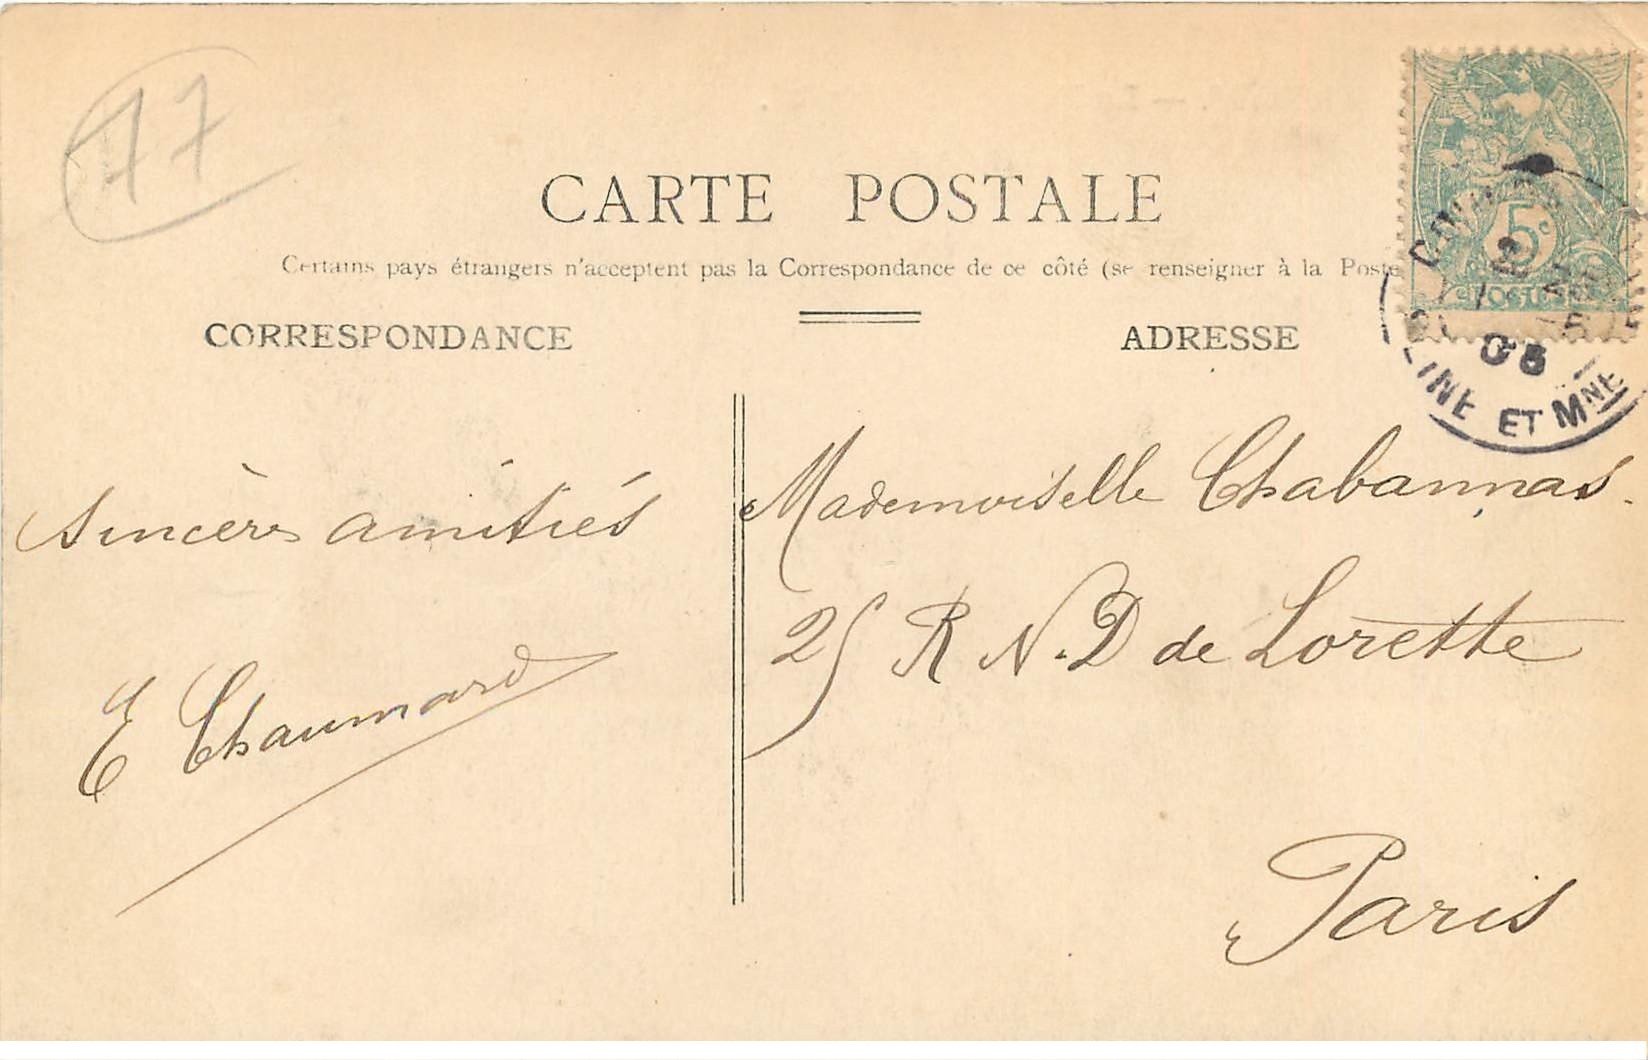 77
CARTE POSTALE
Certains pays étrangers n'acceptent pas la Correspondance de ce côté (se renseigner à la Poste
CORRESPONDANCE
ADRESSE
5c
POSTES
ET MNE
Sincères amitiés
E Chaumard
Mademoiselle Chabannas.
25 R N.D de Lorette
Paris